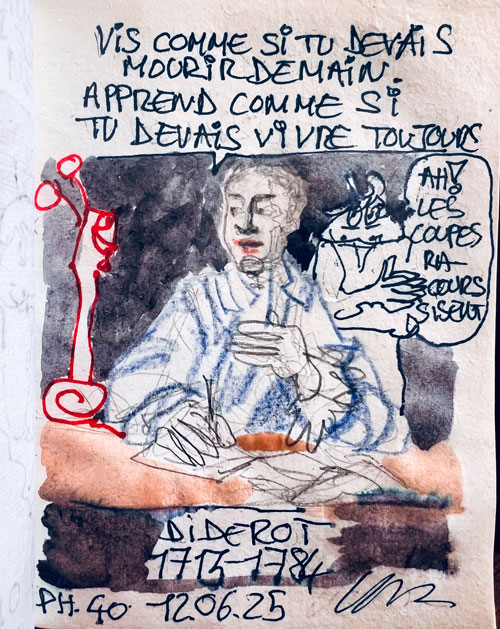 VIS COMME SI TU DEVAIS
MOURIR DEMAIN.
APPREND COMME SI
TU DEVAIS VIVRE TOUTOURS
AH!
LES
COUPES
RA
COURS
SISENT
DIDEROT
1713-1784
PH. 40 12.06.25